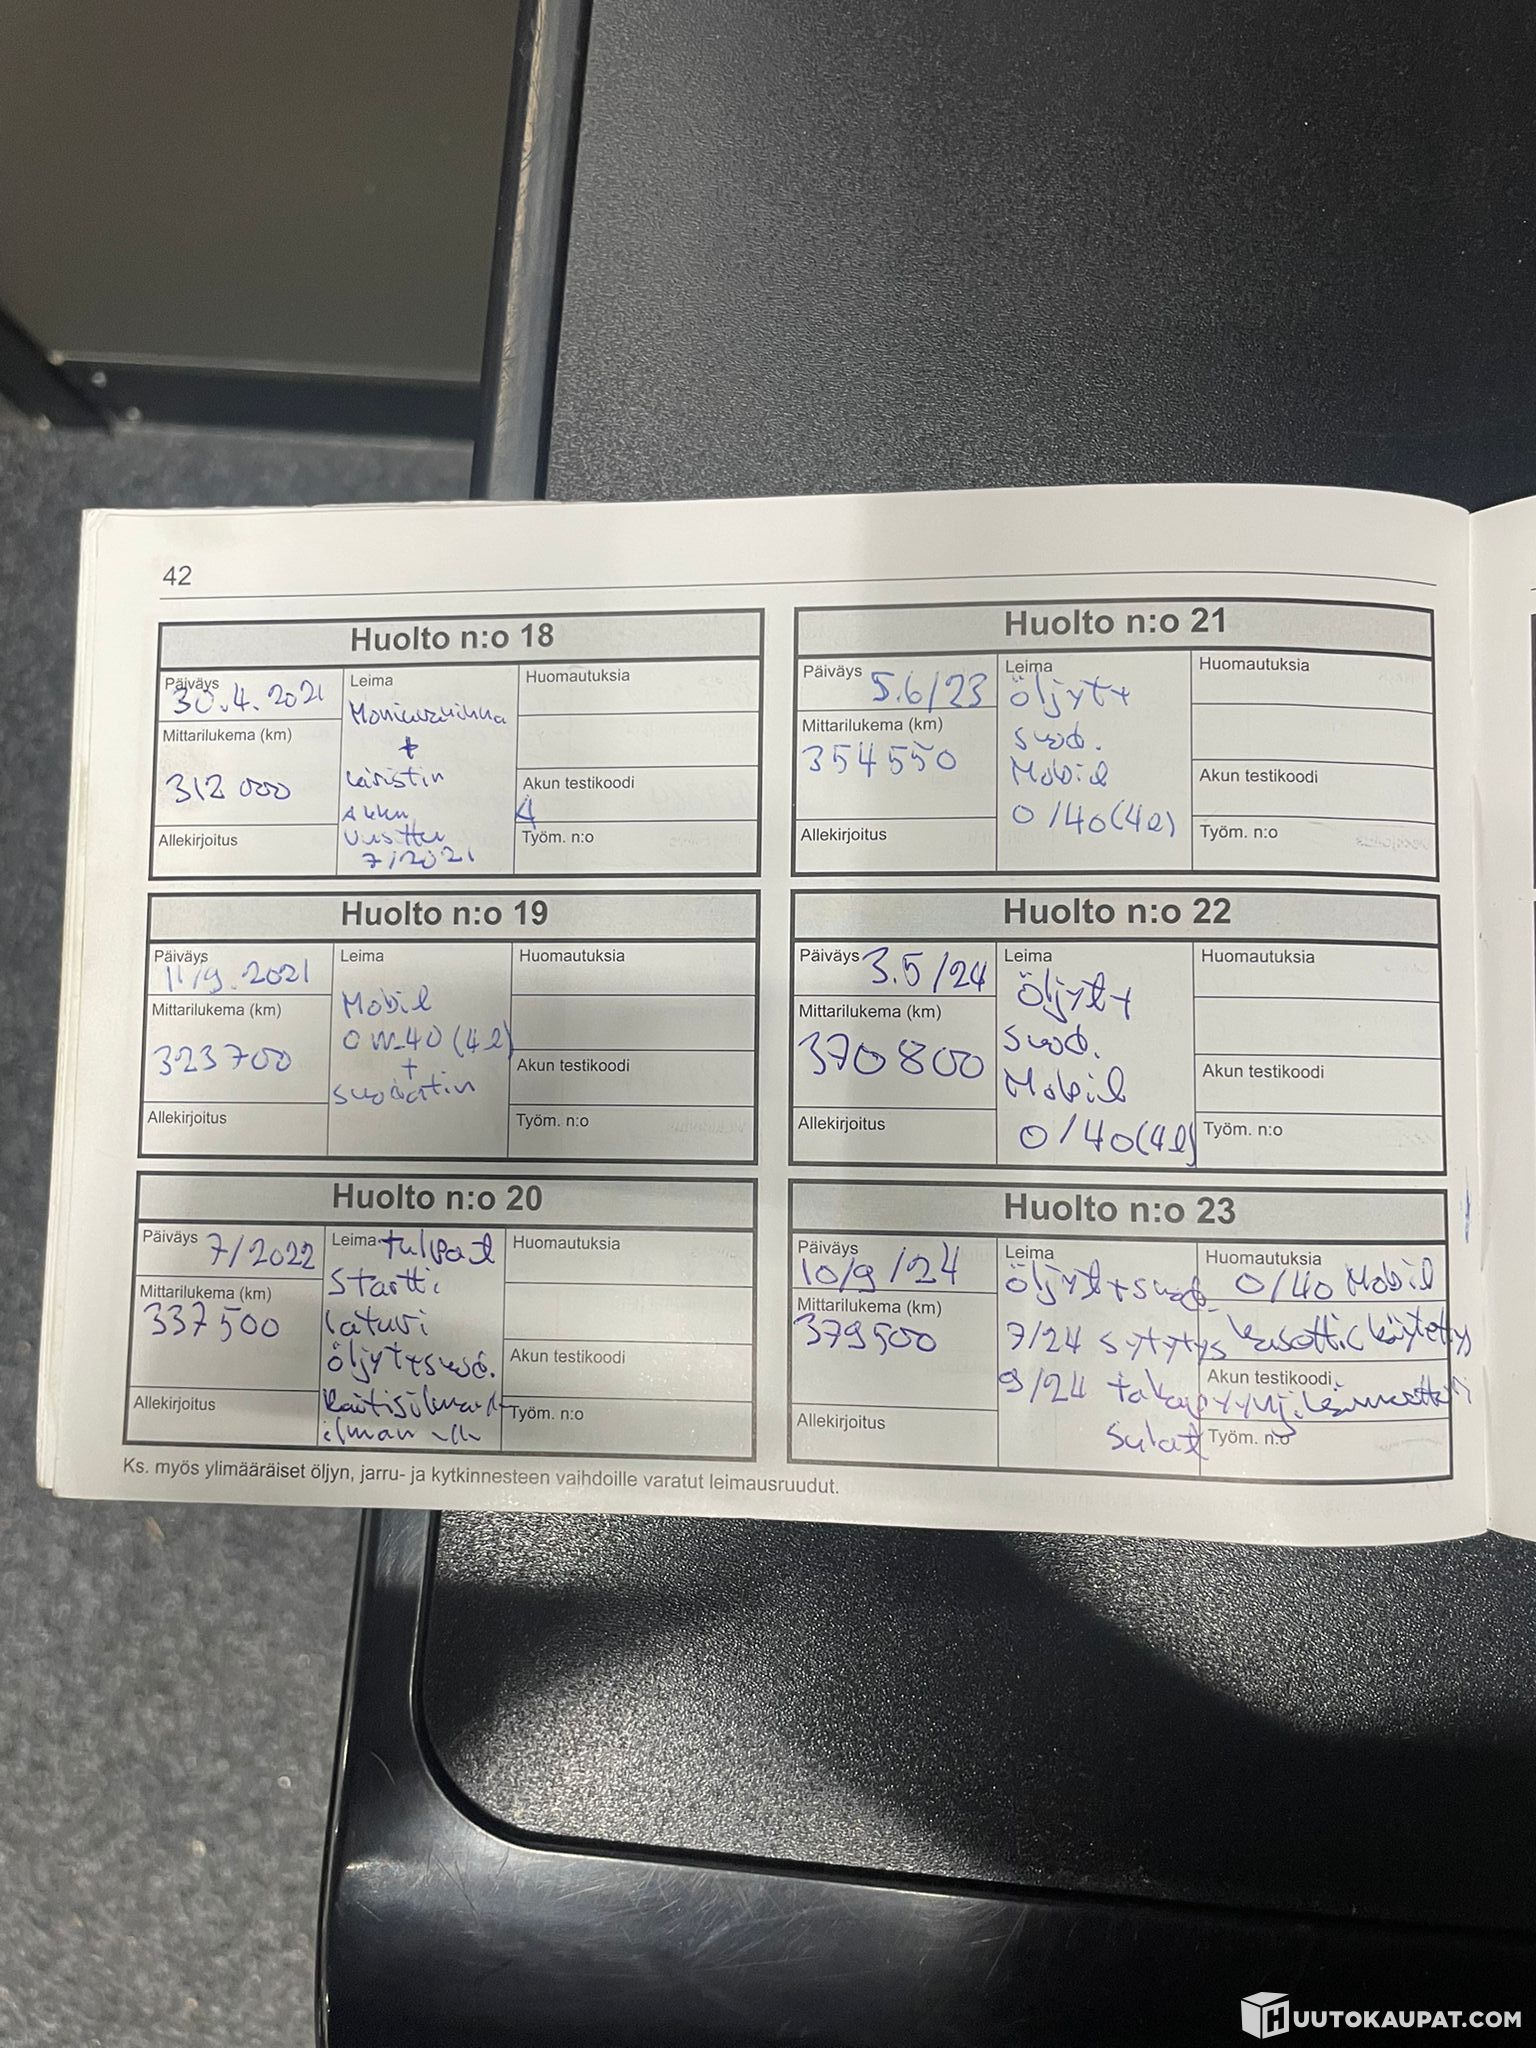 42
Huolto n:o 18
Päiväys
30.4.2021
Mittarilukema (km)
312 000
Allekirjoitus
Leima
Moniurahihna
+
kiristin
Akku
Uusittu
7/2021
Huomautuksia
Akun testikoodi
4
Työm. n:o
Huolto n:o 19
Päiväys
11/9.2021
Mittarilukema (km)
323700
Allekirjoitus
Leima
Mobil
0W40 (4l)
+
suodatin
Huomautuksia
Akun testikoodi
Työm. n:o
Huolto n:o 20
Päiväys 7/2022
Mittarilukema (km)
337500
Allekirjoitus
Leima tulpat
Startti
laturi
öljyt+suod.
ilman -ll-
Huomautuksia
Akun testikoodi
Työm. n:o
Huolto n:o 21
Päiväys 5.6/23
Mittarilukema (km)
354550
Allekirjoitus
Leima
öljyt+
suod.
Mobil
0/40(4l)
Huomautuksia
Akun testikoodi
Työm. n:o
Huolto n:o 22
Päiväys 3.5/24
Mittarilukema (km)
370800
Allekirjoitus
Leima
öljyt+
suod.
Mobil
0/40(4l)
Huomautuksia
Akun testikoodi
Työm. n:o
Huolto n:o 23
Päiväys
10/9/24
Mittarilukema (km)
379500
Allekirjoitus
Leima
öljyt+suod.
7/24 sytytys kasetti (käytetty)
9/24 takapyyhkijä
Sulat
Huomautuksia
0/40 Mobil
Akun testikoodi
Työm. n:o
Ks. myös ylimääräiset öljyn, jarru- ja kytkinnesteen vaihdoille varatut leimausruudut.
HUUTOKAUPAT.COM